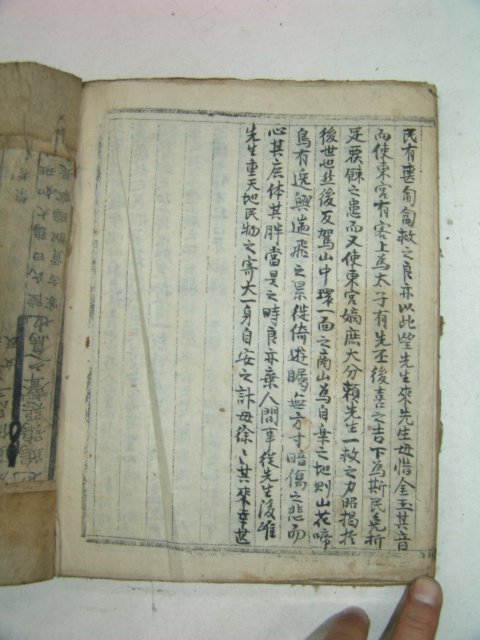 民有喪匍匐救之良亦以此望先生來先生毋惜金玉其音
而使東宮有客上為太子有先丕後喜之吉下為斯民免折
足覆餗之患而又使東宮嫡庶大分賴先生一救之力昭揭於
後世也然後反駕山中環一面之商山為自棄之地則山花啼
鳥有逸興遄飛之景徙倚遊矚無方寸暗傷之悲而
心其庶体其胖當是之時良亦棄人間事從先生後唯
先生重天地民物之寄大一身自安之計毋徐〻其來幸甚